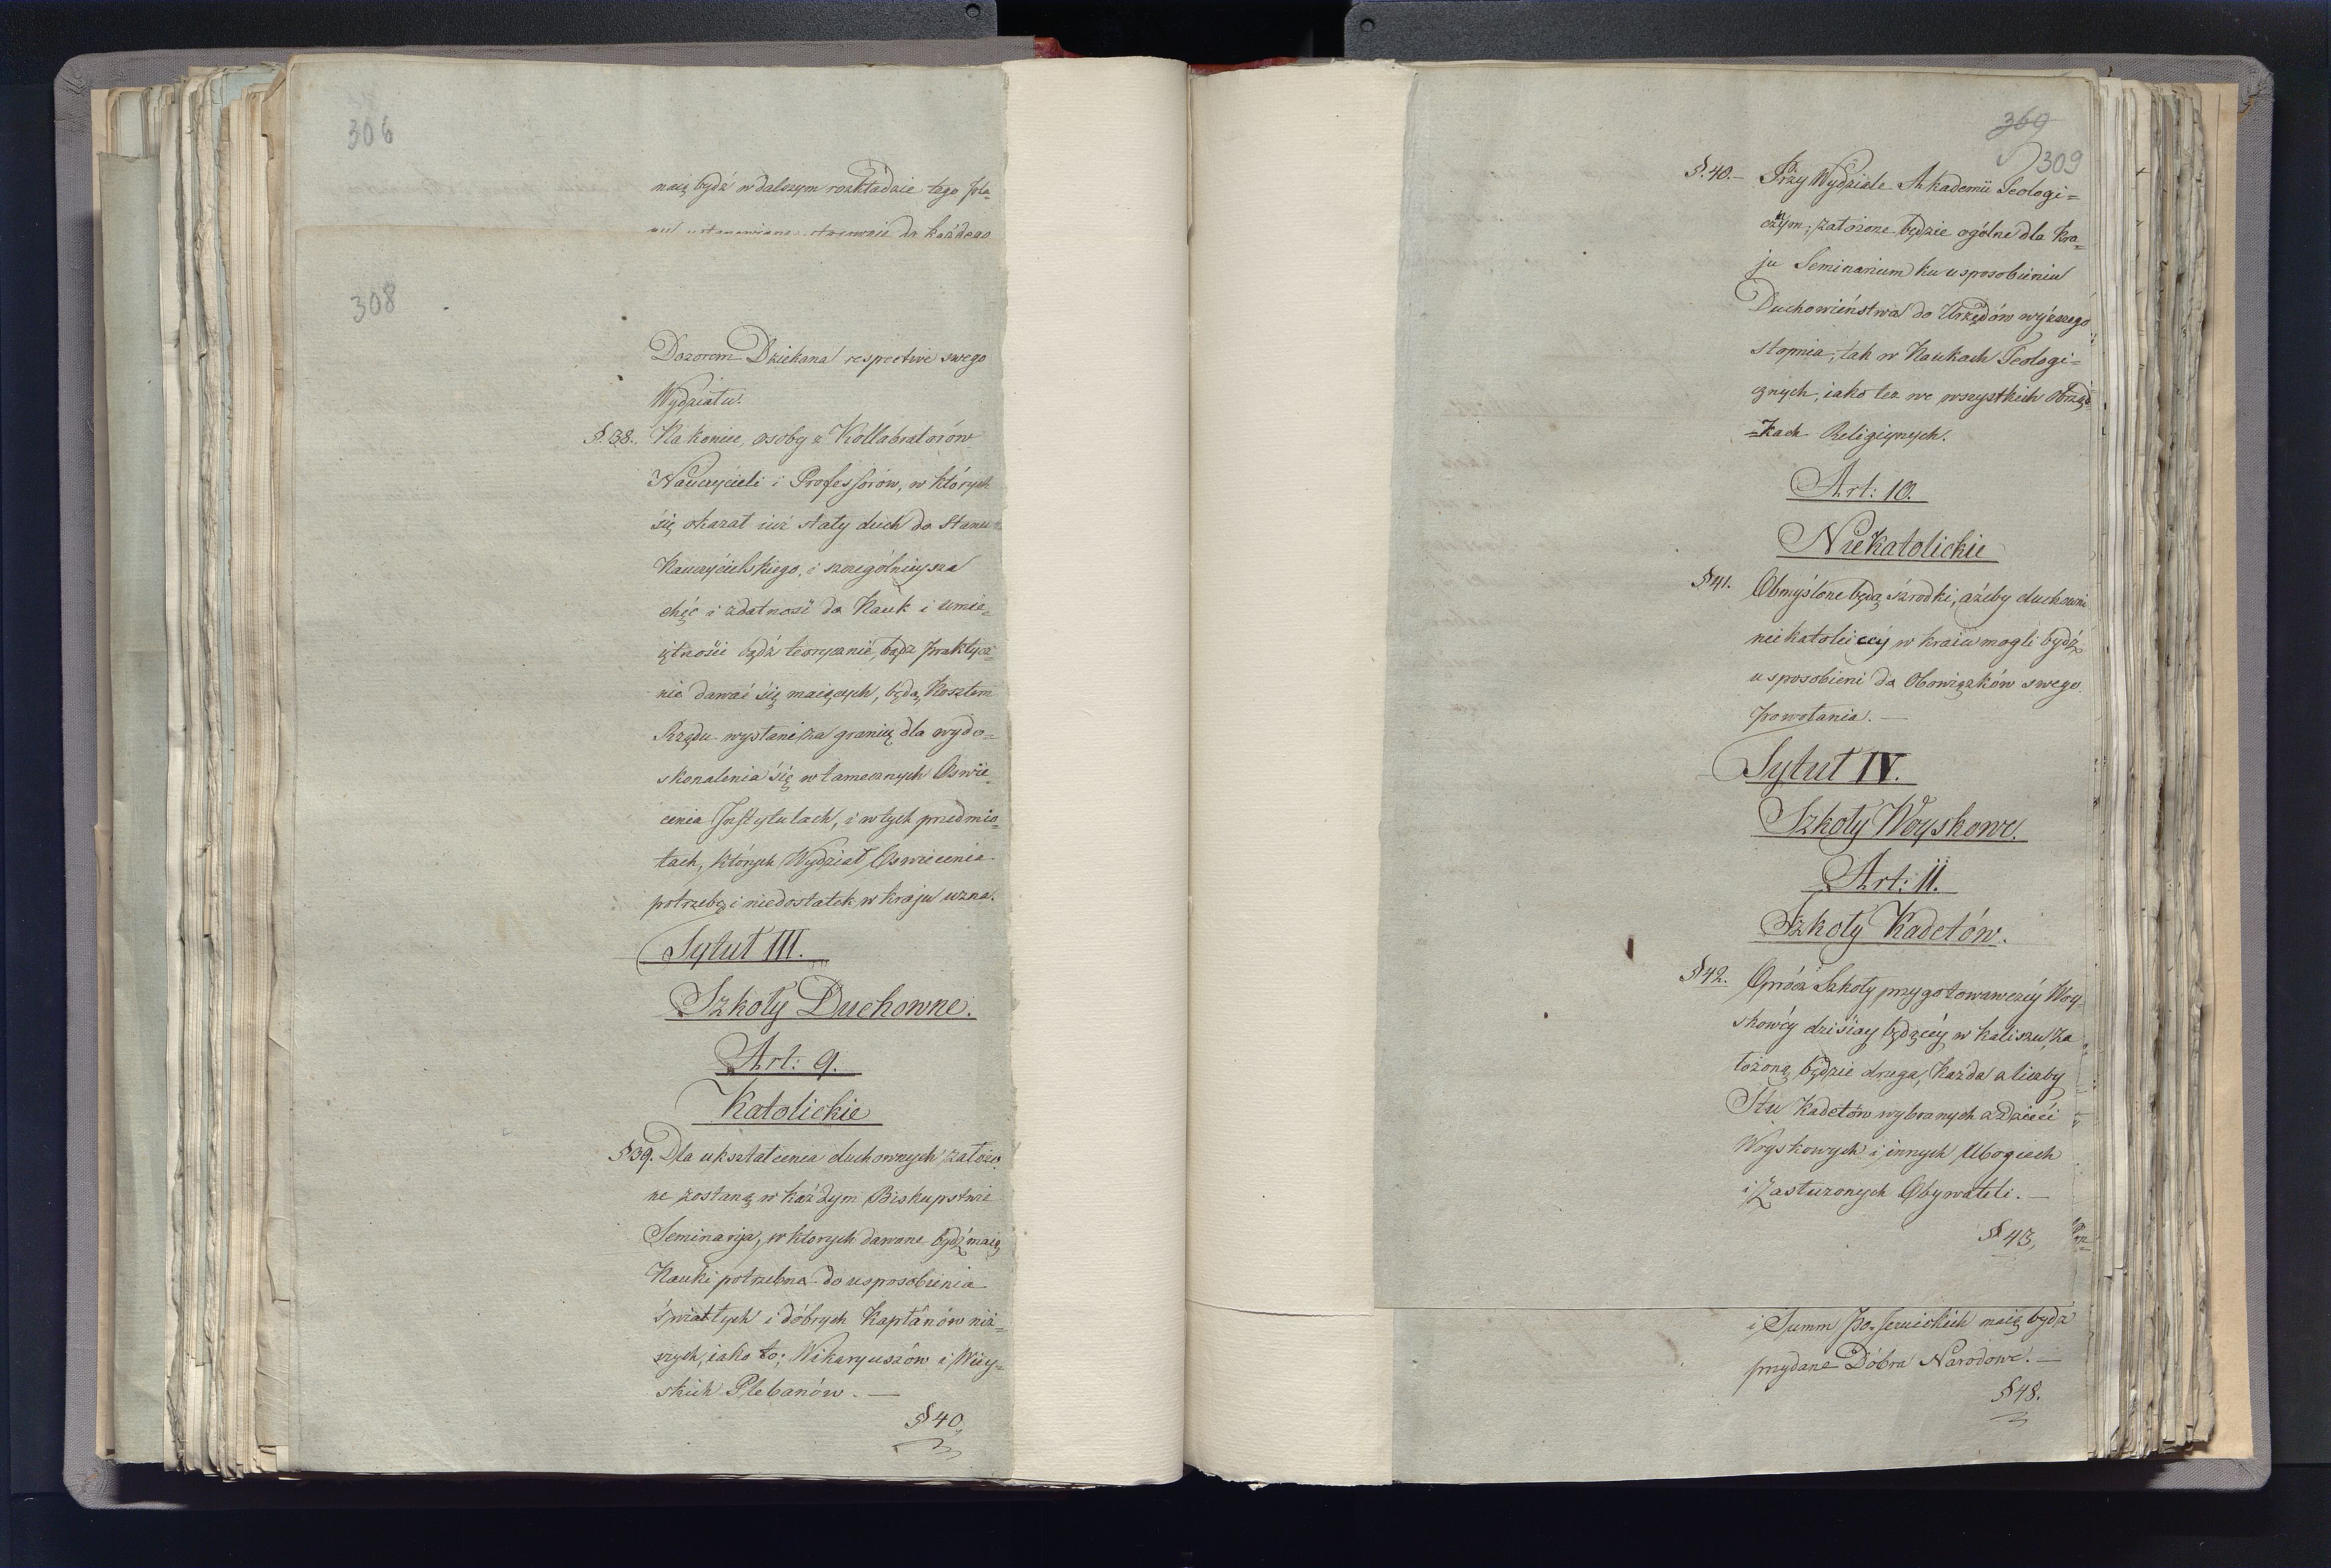 306
maią bydź w dalszym rozkładzie tego pla-
do każdego
308
Dozorem Dziekana respective swego
Wydziału.
§. 38. Nakoniec, osoby z Kollabratorów
Nauczycieli i Professorów, w których
się okazał iuż stały duch do Stanu
Nauczycielskiego, i szczególnieysza
chęć i zdatność do Nauk i umie-
iętności bądź teorycznie, bądź praktycz-
nie dawać się maiących, będą Kosztem
Rządu wysłani za granicę dla wydo-
skonalenia się w tamecznych Oswie-
cenia Instytutach, i w tych przedmio-
tach, których Wydział Oswiecenia
potrzebę i niedostatek w kraju uzna.
Tytuł III.
Szkoły Duchowne.
Art: 9.
Katolickie
§39. Dla ukształcenia duchownych założo-
ne zostaną w każdym Biskupstwie
Seminarya, w ktorych dawane bydź maią
Nauki potrzebne do usposobienia
światłych i dobrych Kapłanów niż-
szych, iako to; Wikaryuszów i Wiey-
skich Plebanów. —
§ 40,
369
309
§. 40. — Przy Wydziale Akademii Teologi=
cznym, założone będzie ogólne dla Kra-
ju Seminarium ku usposobieniu
Duchowieństwa do Urzędów wyższego
stopnia, tak w Naukach Teologi=
cznych, iako tez we wszystkich Obrząd-
=kach Religiynych.
Art: 10.
Niekatolickie
§ 41. Obmyślone będą śzrodki, ażeby duchowni
niekatoliccy w kraiu mogli bydź
usposobieni do Obowiązków swego
powołania. —
Tytuł IV.
Szkoły Woyskowe.
Art: 11.
Szkoły Kadetów.
§ 42. Oprócz Szkoły przygotowawczéy Woy-
skowéy dzisiay będącéy w Kaliszu, za
łożoną będzie druga, Każda z liczby
Stu Kadetów wybranych z Dzieci
Woyskowych i innych Ubogich
i Zasłużonych Obywateli. —
§ 43,
i Summ po-Jezuickich maią bydź
przydane Dobra Narodowe. —
§ 48.